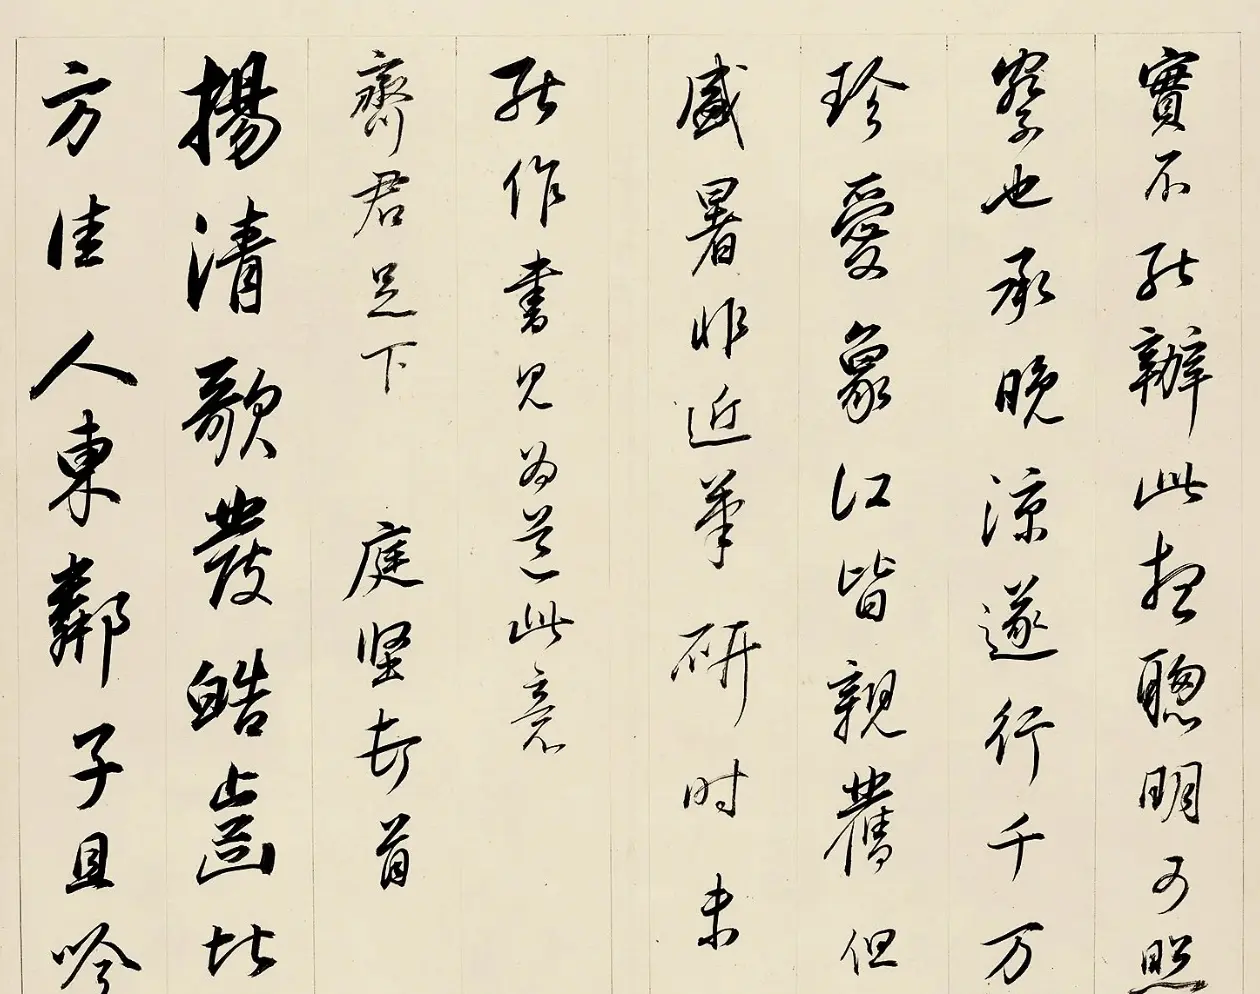 實不能辦此想聰明可照
察也承晚涼遂行千万
珍愛象江皆親舊但
盛暑非近筆研時未
能作書見為道此意
齋君足下 庭坚頓首
揚清歌發皓齒北
方佳人東鄰子且吟